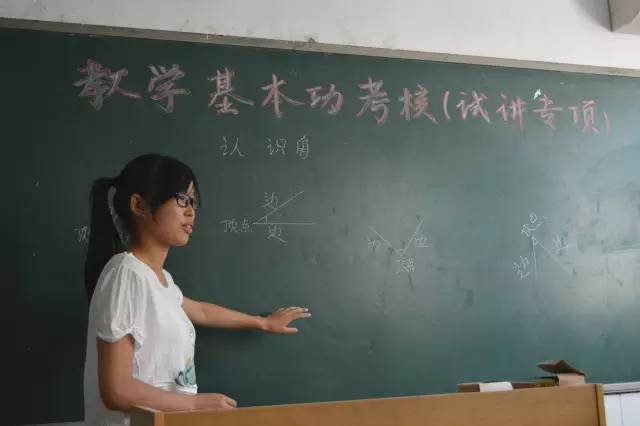 教学基本功考核(试讲专项)
认识角
边
顶点
边
顶
边
边
边